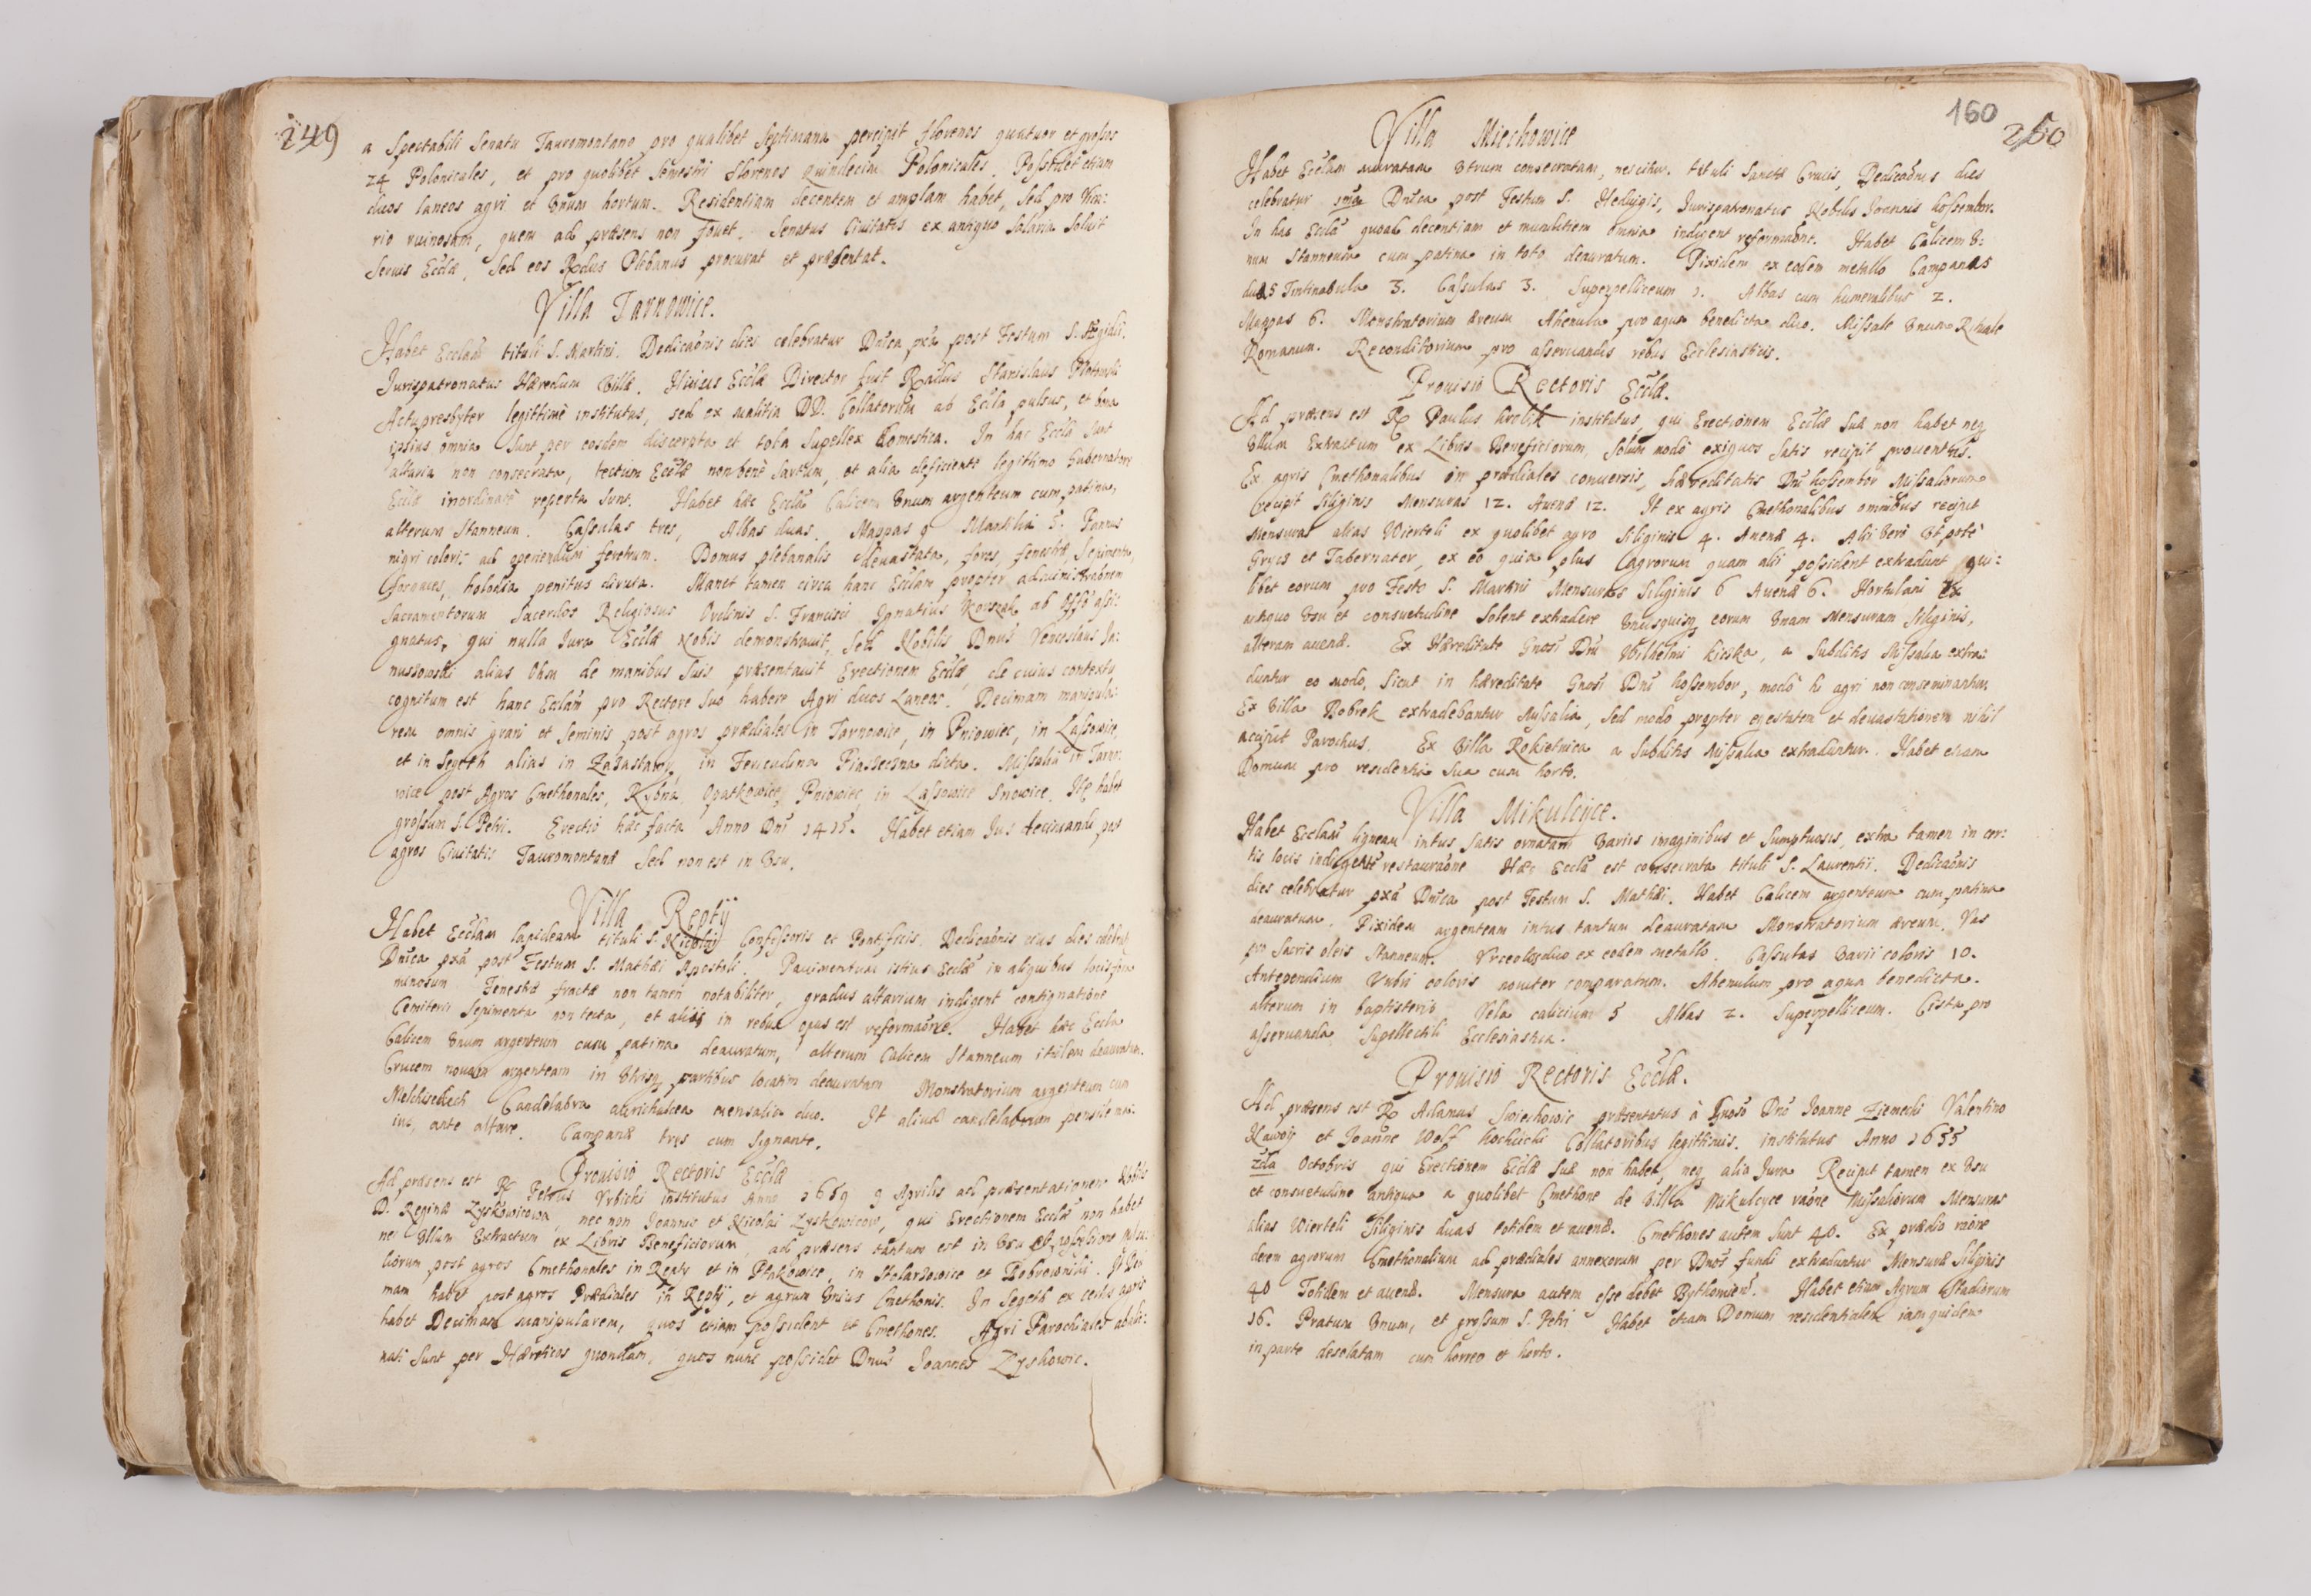 249
a Spectabili Senatu Tauromontano pro qualibet septimana percipit florenos quatuor et grossos
24 Polonicales, et pro quolibet semestri florenos quindecim Polonicales. Possidet etiam
duos laneos agri et Unum hortum. Residentiam decentem et amplam habet, sed pro Vica:
rio ruinosam, quem ad præsens non fouet. Senatus Ciuitatis ex antiquo Salaria soluit
Seruis Ecclæ, sed eos Rndus Plebanus procurat et præsentat.
Villa Tarnowice.
Habet Ecclam tituli S. Martini. Dedicaonis dies celebratur Dnica pxa post Festum S. Ægidii.
Jurispatronatus Hæredum Villæ. Huius Ecclæ Director fuit Rndus Stanislaus
Actu presbyter legittimè institutus, sed ex malitia DD. Collatorum ab Eccla pulsus, et bona
ipsius omnia sunt per eosdem discerpta et tota supellex domestica. In hac Eccla sunt
altaria non consecrata, tectum Ecclæ non benè sartum, et alia deficiente legitimo Gubernatore
Ecclæ inordinatè reperta sunt. Habet hæc Eccla Calicem Unum argenteum cum patina,
alterum stanneum. Cassulas tres, Albas duas. Mappas 9 Mantilia 5. Pannus
nigri coloris ad operiendum feretrum. Domus plebanalis deuastata, fores, fenestræ, sepimenta,
fornaces, penitus diruta. Manet tamen circa hanc Ecclam propter administraonem
Sacramentorum Sacerdos Religiosus Ordinis S. Francisci Ignatius ab Offo assi:
gnatus, qui nulla Jura Ecclæ Nobis demonstrauit, sed Nobilis Dnus Venceslaus Ja:
nussowski alias Ohm de manibus suis præsentauit Erectionem Ecclæ, de cuius contextu
cognitum est hanc Ecclam pro Rectore suo habere Agri duos Laneos. Decimam manipula:
rem omnis grani et seminis post agros prædiales in Tarnowice, in Pniowiec, in Lassowice,
et in Segeth alias in in Piasseczna dicta. Missalia in Tarno:
wice post Agros Cmethonales, Rybna, Opatkowice, Pniowiec, in Lassowice Snowice. Ite habet
grossum S. Petri. Erectio hæc facta Anno Dni 1415. Habet etiam Jus decimandi post
agros Ciuitatis Tauromontanæ sed non est in Usu.
Villa Repty
Habet Ecclam lapideam tituli S. Nicolai Confessoris et Pontificis. Dedicaonis eius dies celebrat
Dnica pxa post Festum S. Mathæi Apostoli. Pauimentum istius Ecclæ in aliquibus locis
minosum Fenestræ fractæ non tamen notabiliter, gradus altarium indigent contignatione
Cemiterii sepimenta non tecta, et aliis in rebus opus est reformaone. Habet hæc Eccla
Calicem Unum argenteum cum patina deauratum, alterum Calicem Stanneum itidem deauratum.
Crucem nouam argenteam in Utrisq partibus locatim deauratam Monstratorium argenteum cum
Melchisedech Candelabra aurichalcea mensalia duo. It aliud candelabrum pensile
ante altare. Campanæ tres cum signante.
Prouisio Rectoris Ecclæ
Ad præsens est R Petrus Urbicki institutus Anno 1659 9 Aprilis ad præsentationem Nobilis
D. Reginæ Zyskowicowa, nec non Joannis et Nicolai Zyskowicow, qui Erectionem Ecclæ non habet
nec Ullum Extractum ex Libris Beneficiorum, ad præsens tantum est in Usu et possessione
liorum post agros Cmethonales in Repty et in Ptakowice, in Stolarzowice et Bobrowniki.
mam habet post agros Prædiales in Repty, et agrum Unius Cmethonis. In Segeth ex certis agris
habet Decimam manipularem, quos etiam possident et Cmethones. Agri Parochiales abali:
nati sunt per Hæreticos quondam, quos nunc possidet Dnus Joannes Zyskowic.
160
250
Villa Miechowice
Habet Ecclam muratam Utrum consecratam, nescitur. tituli Sanctæ Crucis, Dedicaonis dies
celebratur Dnica post Festum S. Heduigis, Jurispatronatus Nobilis Joannis
In hac Eccla quoad decentiam et munditiem omnia indigent reformaone. Habet Calicem U:
num Stanneum cum patina in toto deauratum. Pixidem ex eodem metallo Campanas
duas Tintinabula 3. Cassulas 3. Superpelliceum 1. Albas cum humeralibus 2.
Mappas 6. Monstratorium æreum Ahenula pro aqua benedicta duo. Missale Unum Rituale
Romanum. Reconditorium pro asseruandis rebus Ecclesiasticis.
Prouisio Rectoris Ecclæ.
Ad præsens est R Paulus Krolik institutus, qui Erectionem Ecclæ suæ non habet neq
Ullum Extractum ex Libris Beneficiorum, solum modo exiguos satis recipit prouentus.
Ex agris Cmethonalibus in prædiales conuersis, hæreditatis Dni Missaliorum
recipit Siliginis Mensuras 12. Auenæ 12. It ex agris Cmethonalibus omnibus recipit
Mensuras alias Wierteli ex quolibet agro Siliginis 4. Auenæ 4. Alii Verò Utpote
Gryes et Tabernator, ex eo quia plus Agrorum quam alii possident extradunt qui:
libet eorum pro Festo S. Martini Mensuras Siliginis 6 Auenæ 6. Hortulani ex
antiquo Usu et consuetudine solent extradere Unusquisq eorum Unam Mensuram Siliginis,
alteram auenæ. Ex Hæreditate Gnosi Dni Wilhelmi Kieska, a Subditis Missalia extra:
duntur eo modo, sicut in hæreditate Gnosi Dni modò hi agri non conseminantur.
Ex Villa Bobrek extradebantur Missalia, sed modo propter egestatem et deuastationem nihil
accipit Parochus. Ex Villa Rokietnica a Subditis Missalia extraduntur. Habet etiam
Domum pro residentia sua cum horto.
Villa Mikulcyce.
Habet Ecclam ligneam intus satis ornatam Variis imaginibus et sumptuosis, extra tamen in cer:
tis locis indigente restauraone Hæc Eccla est consecrata tituli S. Laurentii. Dedicaonis
dies celebratur pxa Dnica post Festum S. Mathæi. Habet Calicem argenteum cum patina
deauratum. Pixidem argenteam intus tantum deauratam Monstratorium æreum. Vas
pro sacris oleis Stanneum. Urceolos duo ex eodem metallo. Cassulas Varii coloris 10.
Antependium rubri coloris nouiter comparatum. Ahenulum pro aqua benedicta.
alterum in baptisterio Vela calicium 5 Albas 2. Superpelliceum. Cista pro
asseruanda supellectili Ecclesiastica.
Prouisio Rectoris Ecclæ.
Ad præsens est R Adamus Swiechowic præsentatus à Gnoso Dno Joanne Ziemecki Valentino
Nawoy et Joanne Wolf Kochcicki Collatoribus legittimis. institutus Anno 1655
2da Octobris qui Erectionem Ecclæ suæ non habet, neq alia Jura Recipit tamen ex Usu
et consuetudine antiqua a quolibet Cmethone de Villa Mikulcyce raone Missaliorum Mensuras
alias Wierteli Siliginis duas totidem et auenæ. Cmethones autem sunt 40. Ex prædio raone
decem agrorum Cmethonalium ad prædiales annexorum per Dnos fundi extraduntur Mensuræ Siliginis
40 Totidem et auenæ. Mensura autem esse debet Bythomien. Habet etiam Agrum Stadiorum
16. Pratum Unum, et grossum S. Petri Habet etiam Domum residentialem iam quidem
in parte desolatam cum horreo et horto.